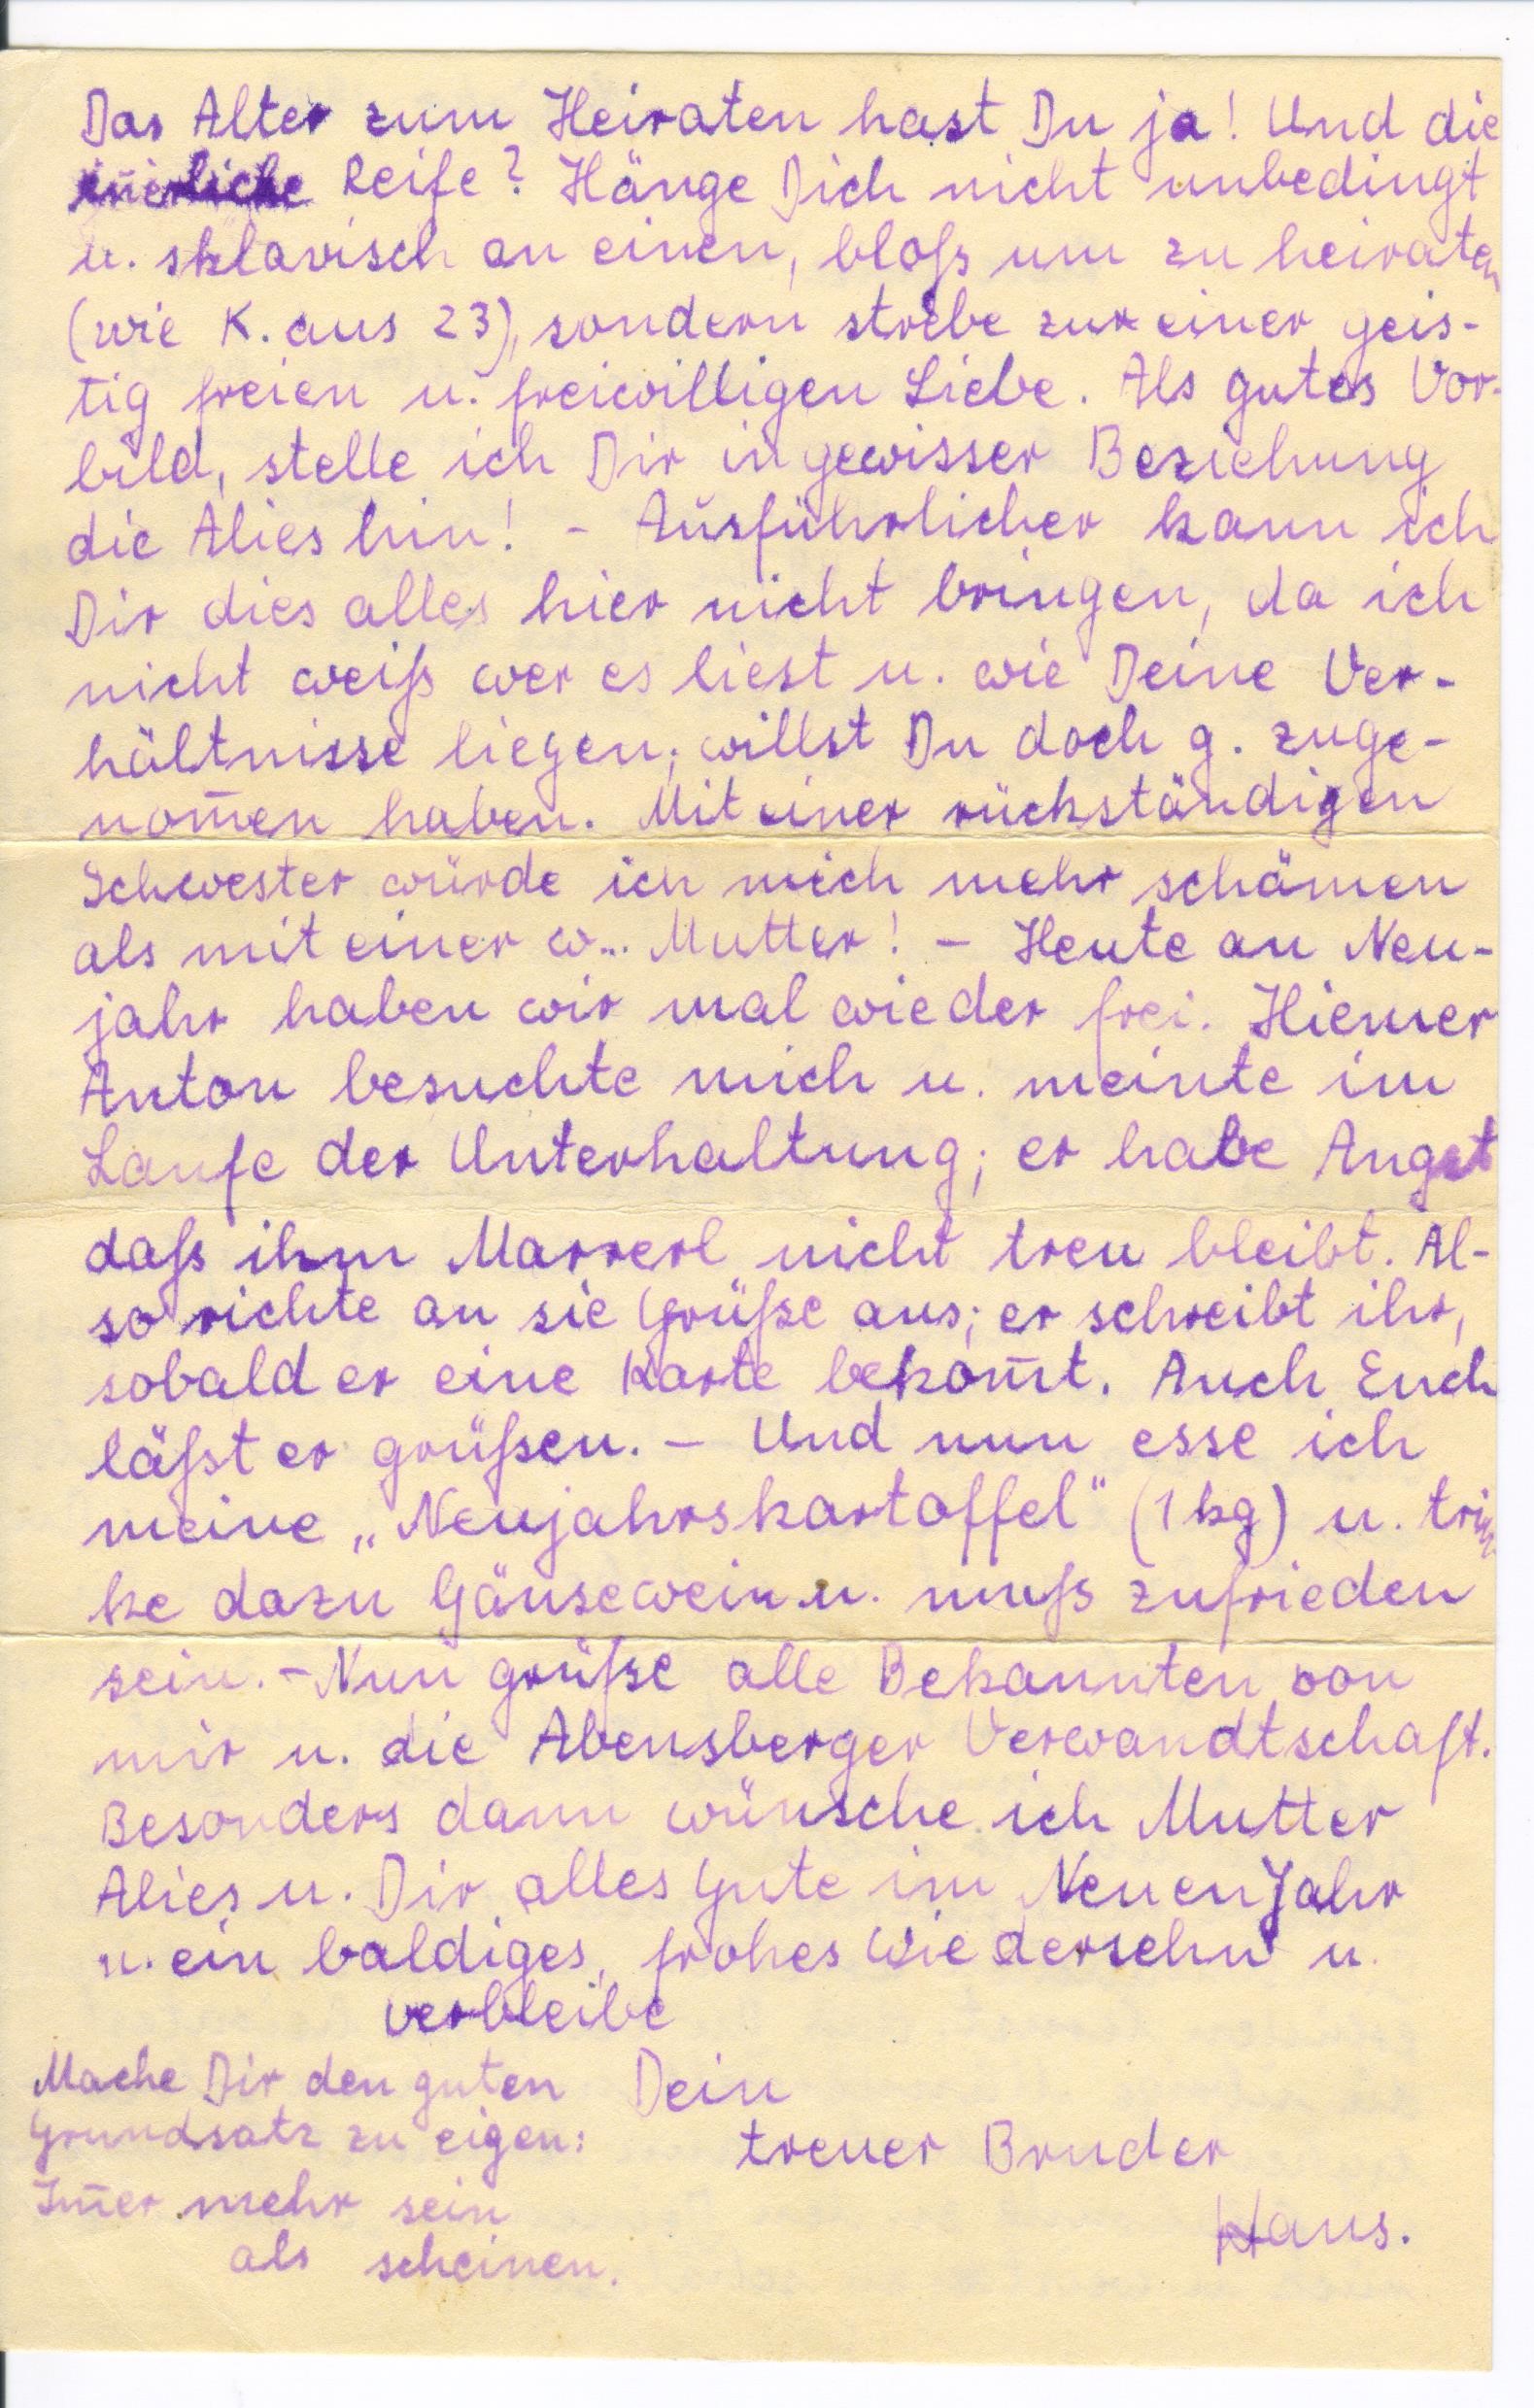 Das Alter zum Heiraten hast Du ja! Und die
inn̄erliche Reife? Hänge Dich nicht unbedingt
u. sklavisch an einen, bloß um zu heiraten
(wie K. aus 23), sondern strebe zur einer geis-
tig freien u. freiwilligen Liebe. Als gutes Vor-
bild, stelle ich Dir in gewisser Beziehung
die Alies hin! - Ausführlicher kann ich
Dir dies alles hier nicht bringen, da ich
nicht weiß wer es liest u. wie Deine Ver-
hältnisse liegen; willst Du doch g. zuge-
nom̄en haben. Mit einer rückständigen
Schwester würde ich mich mehr schämen
als mit einer w... Mutter! - Heute an Neu-
jahr haben wir mal wieder frei. Hiemer
Anton besuchte mich u. meinte im
Laufe der Unterhaltung; er habe Angst
daß ihm Marrerl nicht treu bleibt. Al-
so richte an sie Grüße aus; er schreibt ihr,
sobald er eine Karte bekom̄t. Auch Euch
läßt er grüßen. - Und nun esse ich
meine „Neujahrskartoffel" (1 kg) u. trin
ke dazu Gänsewein u. muß zufrieden
sein. - Nun grüße alle Bekannten von
mir u. die Abensberger Verwandtschaft.
Besonders dann wünsche ich Mutter
Alies u. Dir alles Gute im Neuen Jahr
u. ein baldiges, frohes Wiedersehn u.
verbleibe
Dein
treuer Bruder
Hans.
Mache Dir den guten
Grundsatz zu eigen:
Im̄er mehr sein
als scheinen.